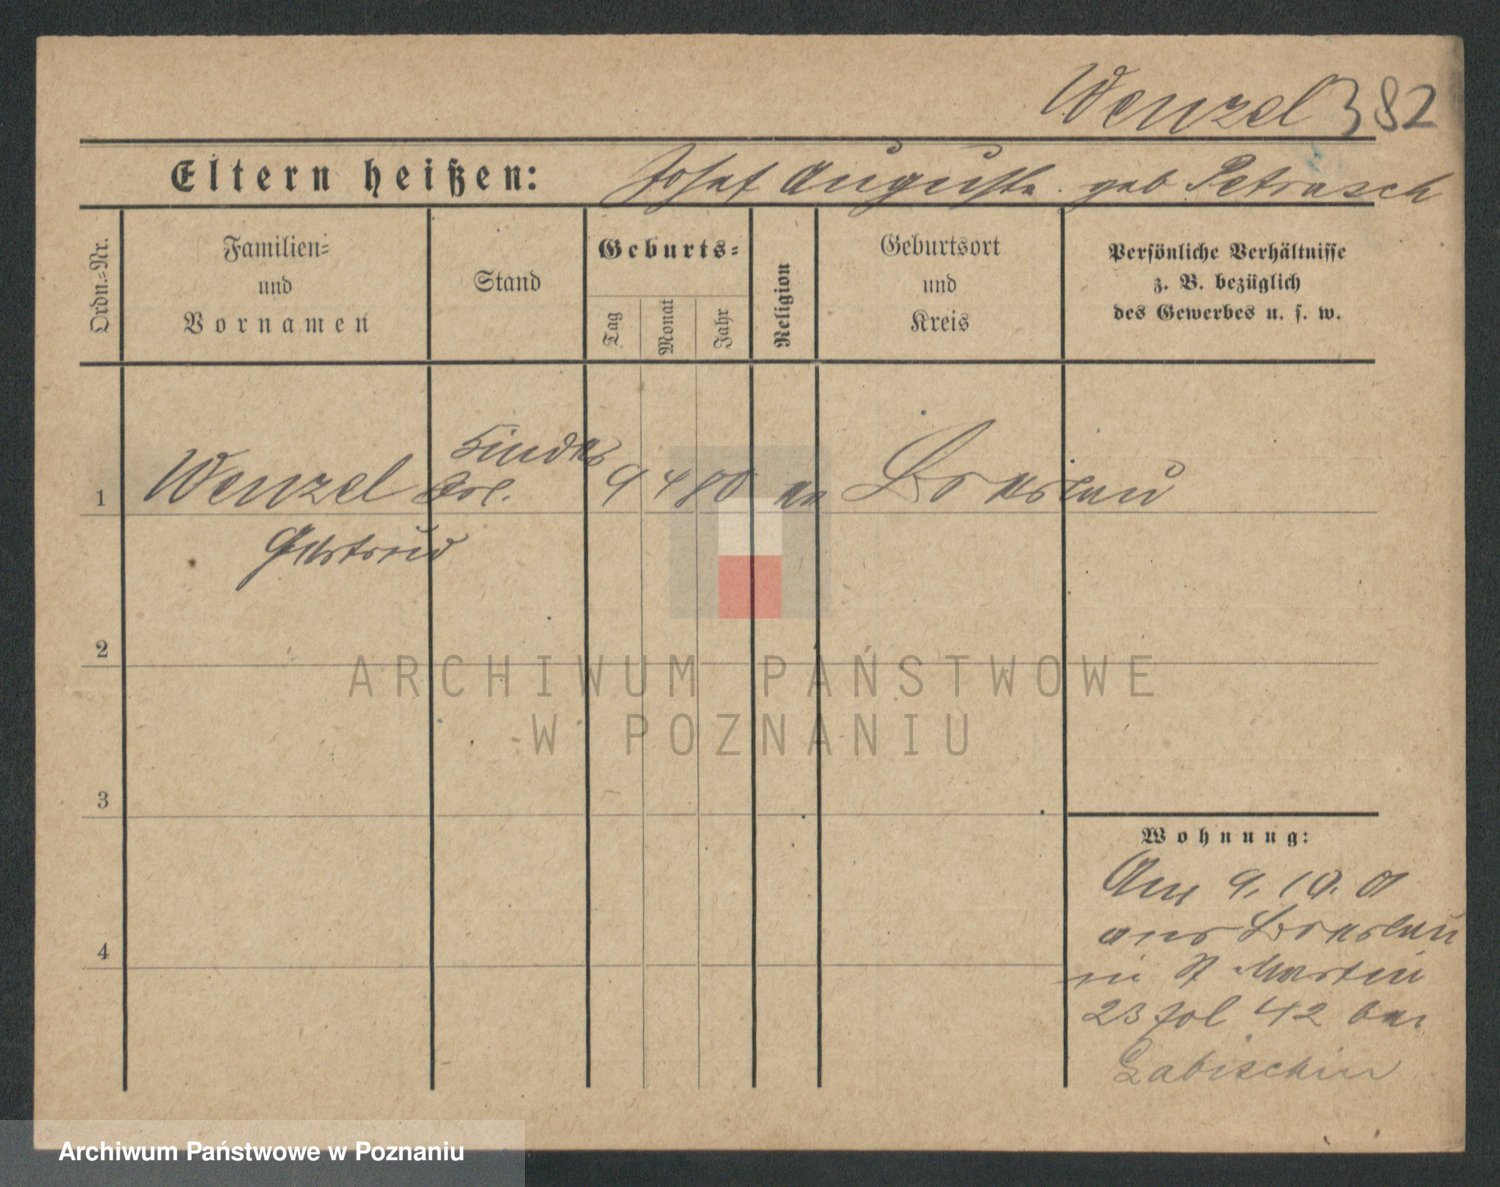 Wenzel 382
Eltern heißen: Josef Auguste geb Petrasch
Ordn.=Nr.
Familien=
und
Vornamen
Stand
Geburts=
Tag
Monat
Jahr
Religion
Geburtsort
und
Kreis
Persönliche Verhältnisse
z. B. bezüglich
des Gewerbes u. s. w.
Kinder
1 Wenzel 9 4 80 Breslau
Gertrud
2
ARCHIWUM PAŃSTWOWE
W POZNANIU
3
Wohnung:
Am 9. 10. 01
aus Breslau
in St Martin
23 fol 42 bei
Labischin
4
Archiwum Państwowe w Poznaniu